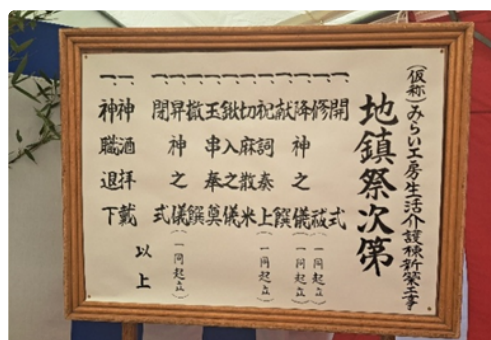 (仮称)みらい工房生活介護棟新築工事
地鎮祭次第
一、開式
一、修祓(一同起立)
一、降神之儀(一同起立)
一、献饌
一、祝詞奏上(一同起立)
一、切麻散米
一、鍬入之儀
一、玉串奉奠
一、撤饌
一、昇神之儀(一同起立)
一、閉式
一、神酒拝戴
一、神職退下
以上